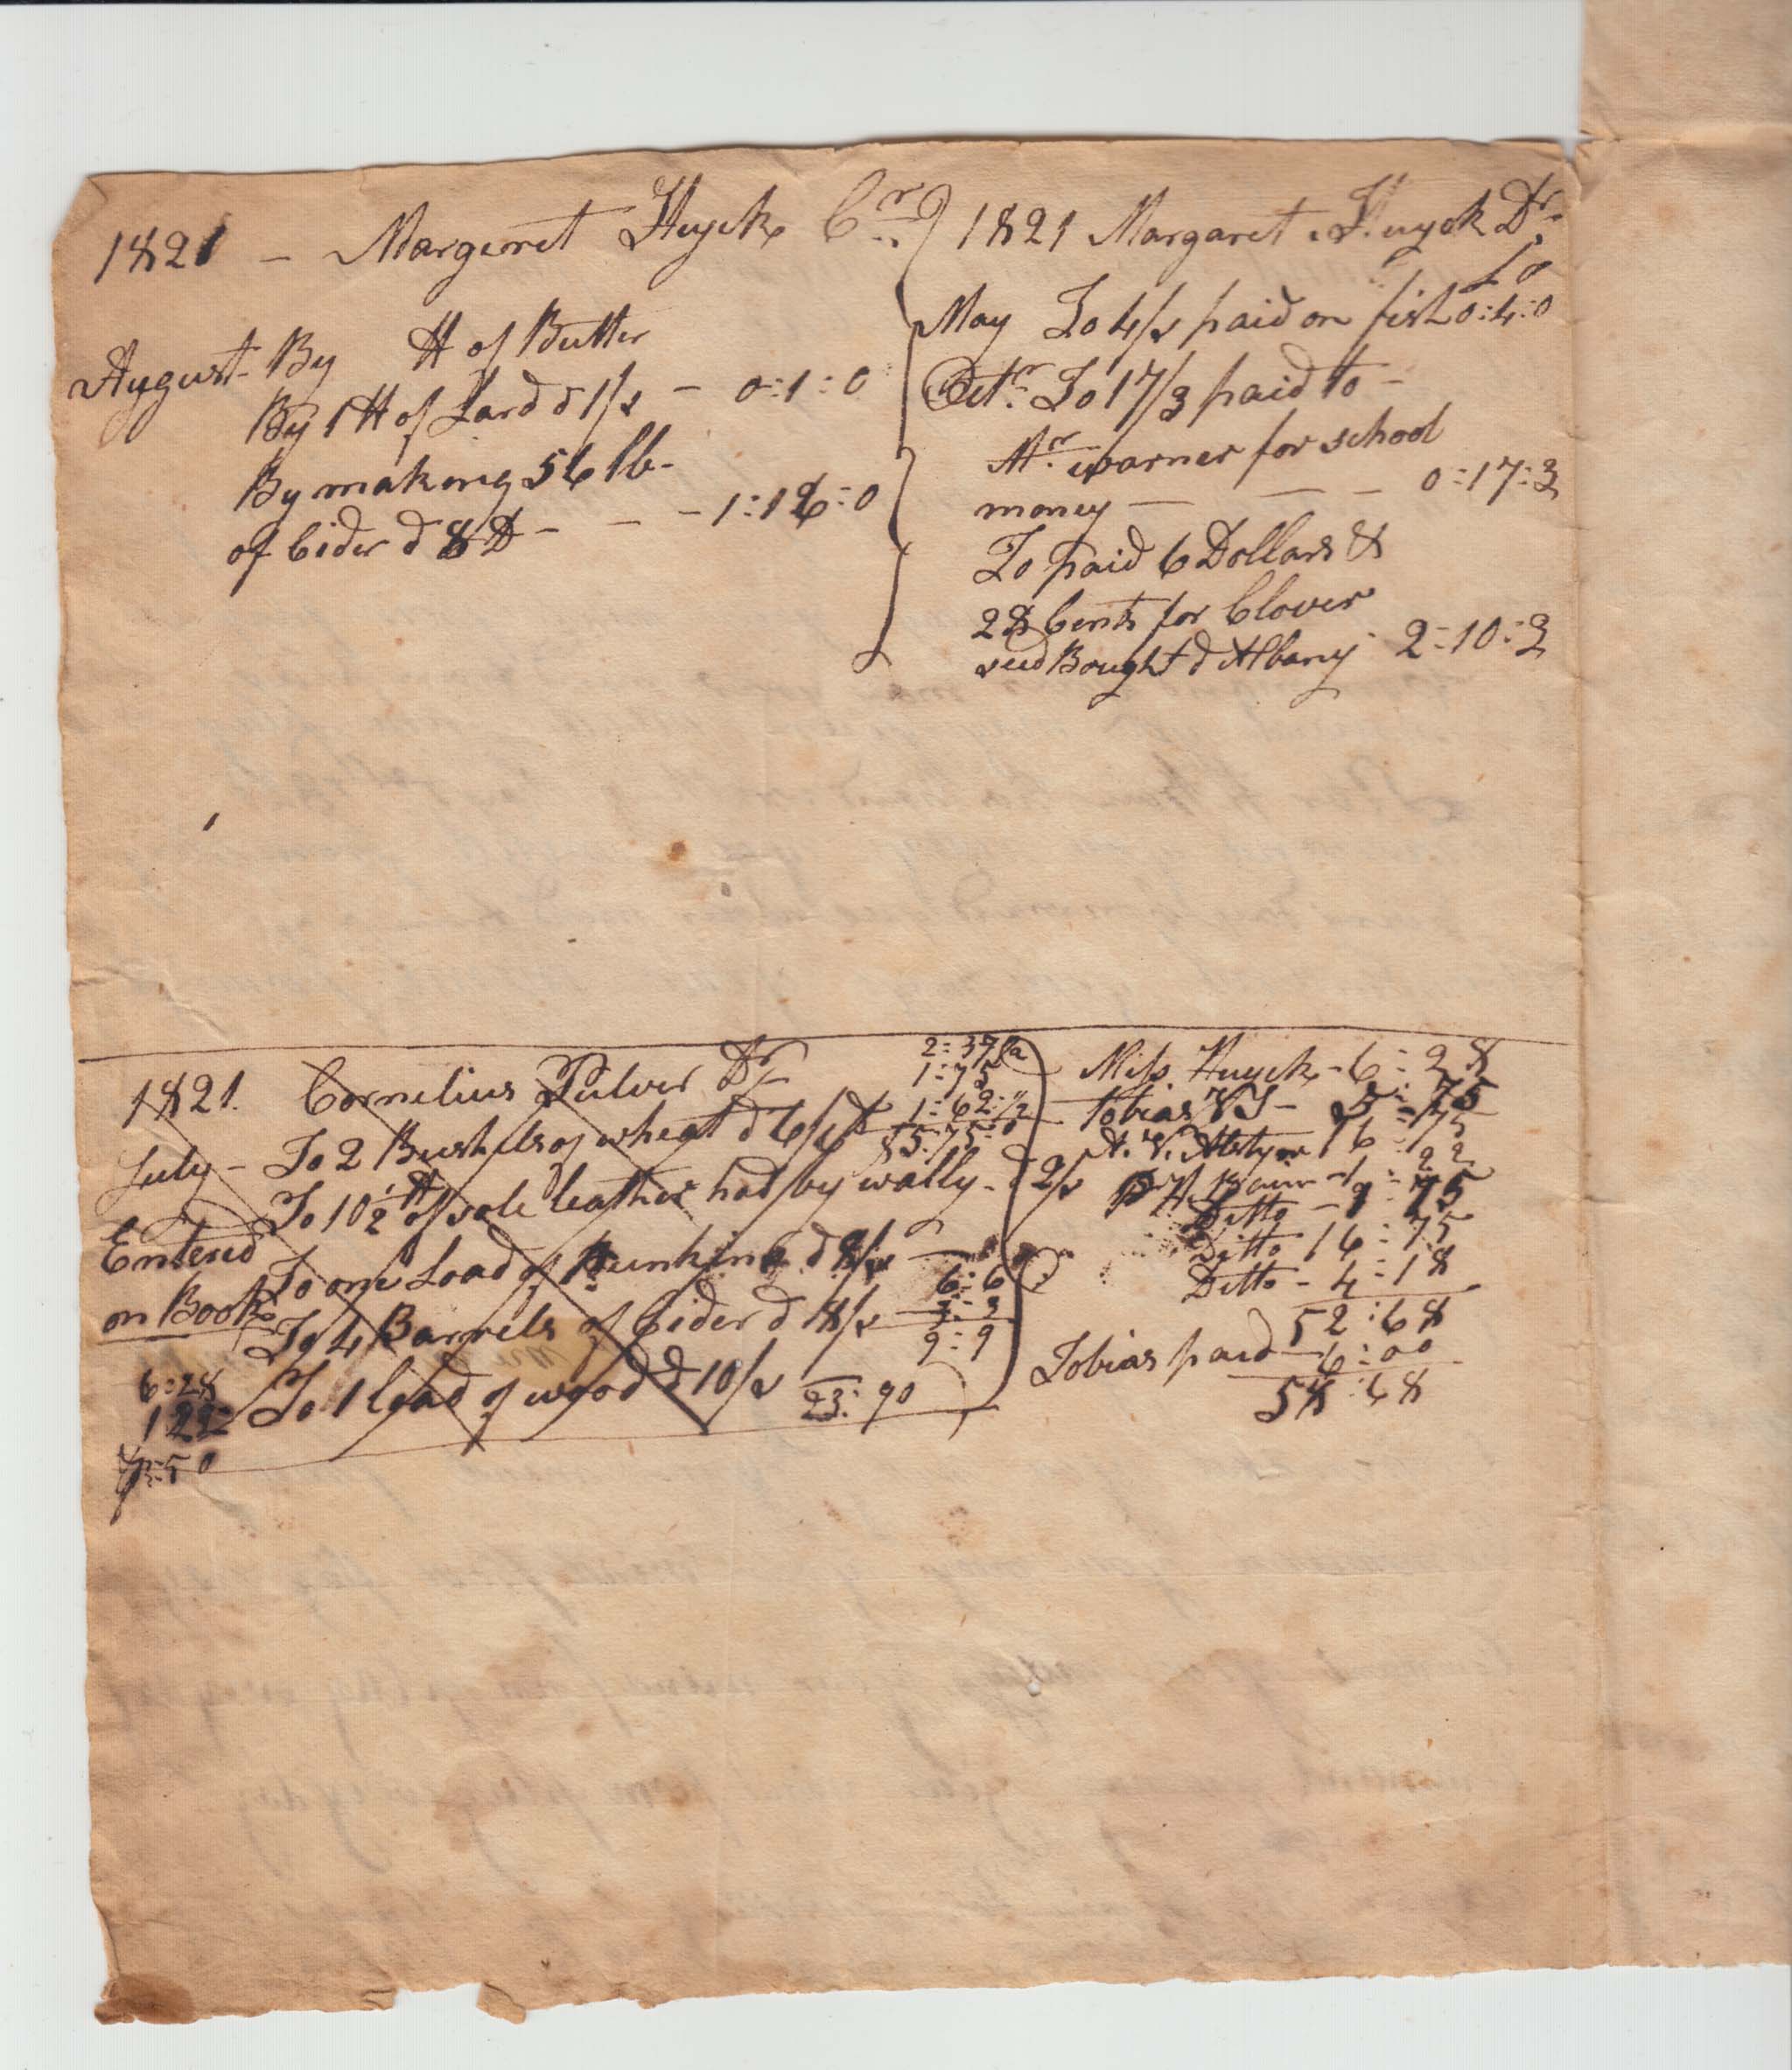 1821 - Margeret Huyck Cr.
August - By ℔ of Butter
By 1 ℔ of Lard @ 1/s - 0:1:0
By making 56 lb-
of Cider @ 8 D - - - 1:16:0
1821 Margaret Huyck Dr.
To
May To 4/s paid on fish 0:4:0
Octr. To 17/3 paid to -
Mr. warner for school
money - - - 0:17:3
To paid 6 Dollars &
28 Cents for Clover
seed Bought @ Albany 2:10:3
1821. Cornelius Pulver Dr.
July - To 2 Bushels of wheat @ 6/6
To 10 1/2 ℔ of sole leather had by wally - @ 2/s
Entered To one Load of Punkins @ 8/s
on Book To 4 Barrels of Cider @ 8/s
To 1 load of wood @ 10/s
6:28
122
7:50
2:37
1:75
1:62:1/2
$5:75:0
6:6
3:3
9:9
23:90
Miss Huyck - 6:28
Tobias VS - 5:75
A. V. Alstyne 16:75
Bain - 1:22
Ditto - 1:75
Ditto 16:75
Ditto - 4:18
52:68
Tobias paid - 6:00
58:68